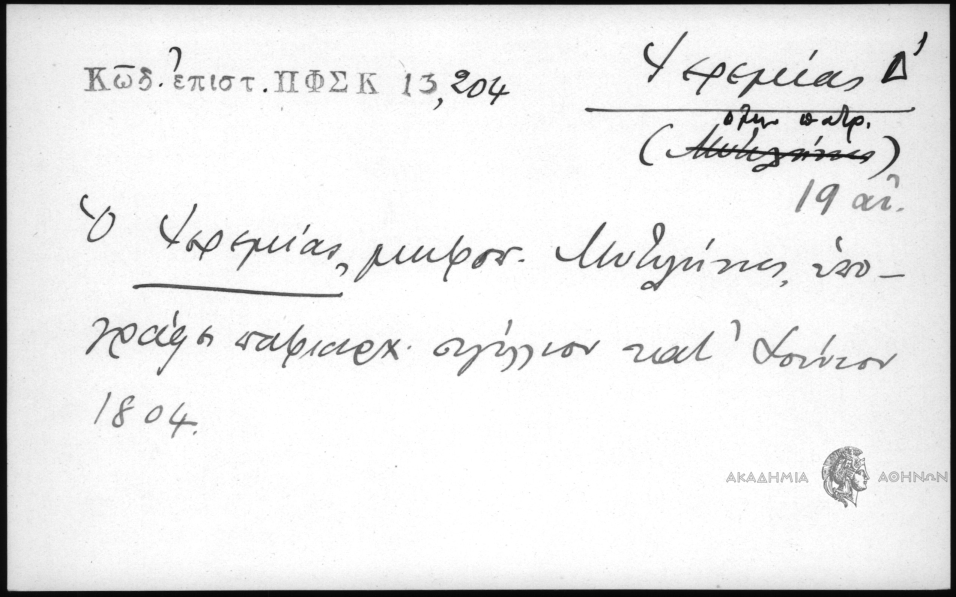 Κῶδ. ἐπιστ. ΠΦΣΚ 13, 204
Ἱερεμίας Δ'
οἰκ. πατρ.
(Μυτιλήνης)
19 αἰ.
Ὁ Ἱερεμίας, μητροπ. Μυτιλήνης, ὑπο-
γράφει πατριαρχ. σιγίλλιον κατ' Ἰούνιον
1804.
ΑΚΑΔΗΜΙΑ ΑΘΗΝΩΝ